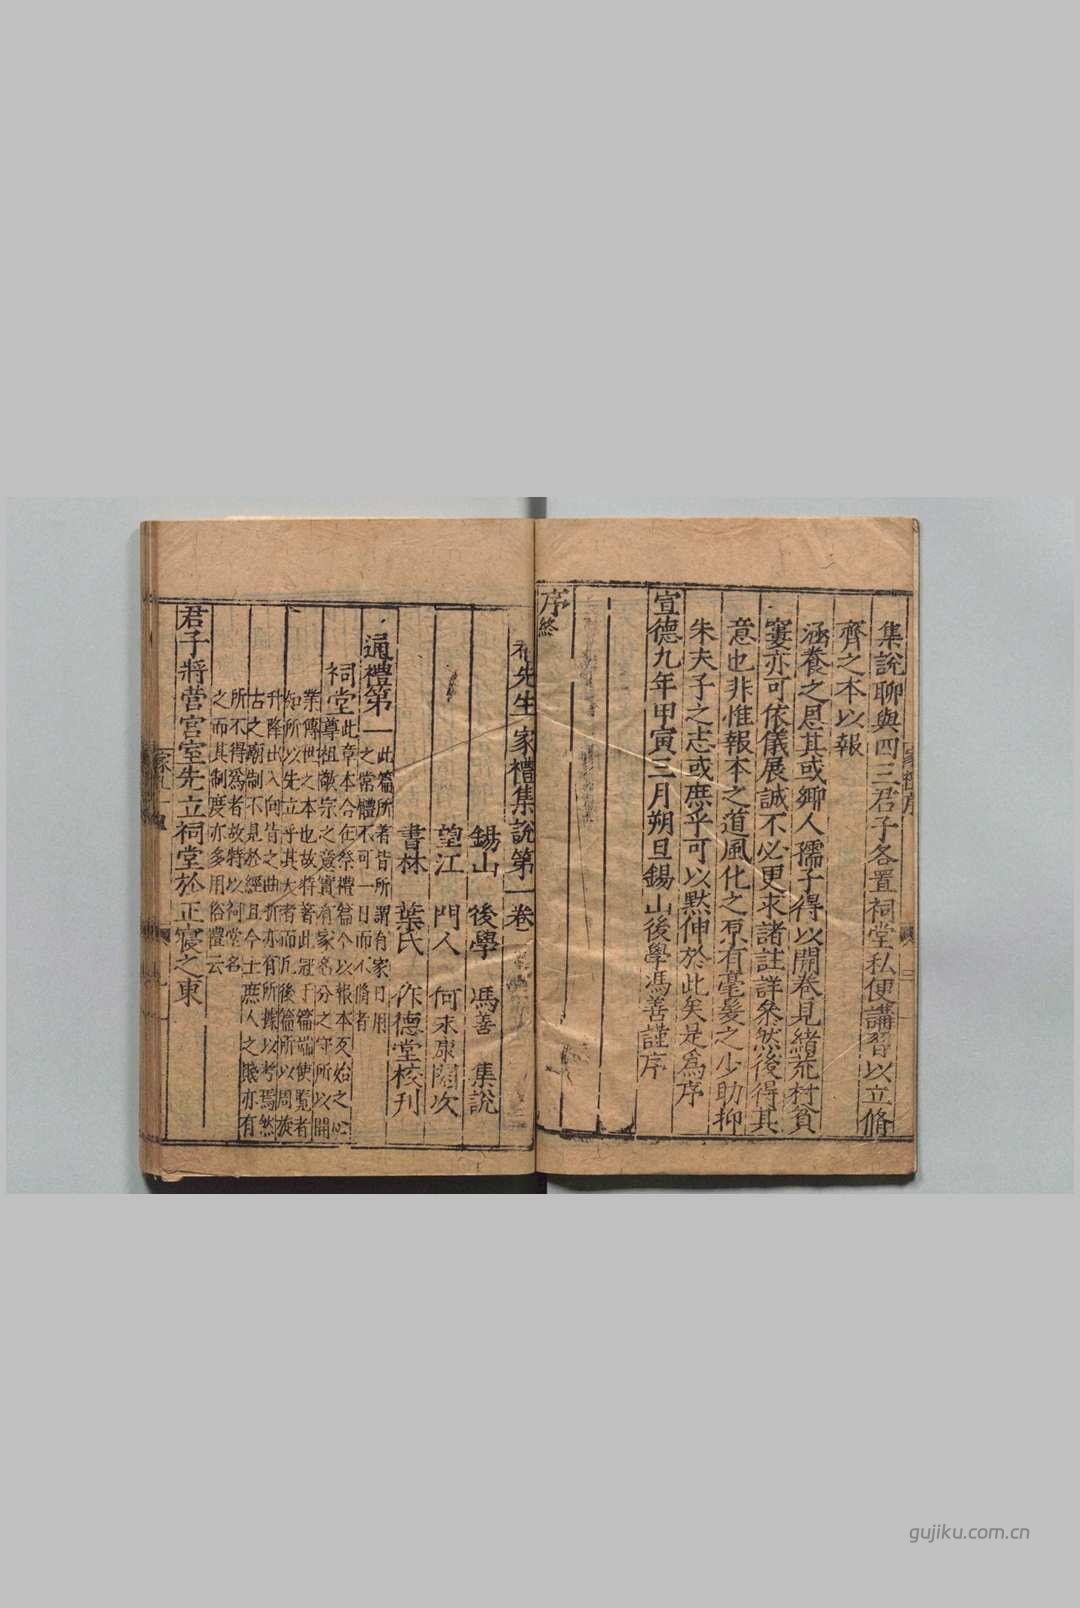 集說聊與四三君子各置祠堂私便講習以立脩
齊之本以報
涵養之恩其或鄉人孺子得以開卷見緒荒村貧
窶亦可依儀展誠不必更求諸註詳叅然後得其
意也非惟報本之道風化之原有毫髮之少助抑
朱夫子之志或庶乎可以黙伸於此矣是為序
宣德九年甲寅三月朔旦錫山後學馮善謹序
序終
先生家禮集說第一卷
錫山 後學 馮善 集說
望江 門人 何 康 次
書林 葉氏 作德堂校刊
通禮第一
此篇所著皆所謂有家日用
之常體不可一日而不脩者
祠堂
此章本合在祭禮篇今以報本反始之心
尊祖敬宗之意實有家名分之守所以開
業傳世之本也故特著此冠于篇端使覧者
知所以先立乎其大者而凡後篇所以周旋
升降出入向背之曲折亦有所據以考焉然
古之廟制不見於經且今士庶人之賤亦有
所不得為者故特以祠堂名
之而其制度亦多用俗禮云
君子將營宮室先立祠堂於正寢之東
gujiku.com.cn